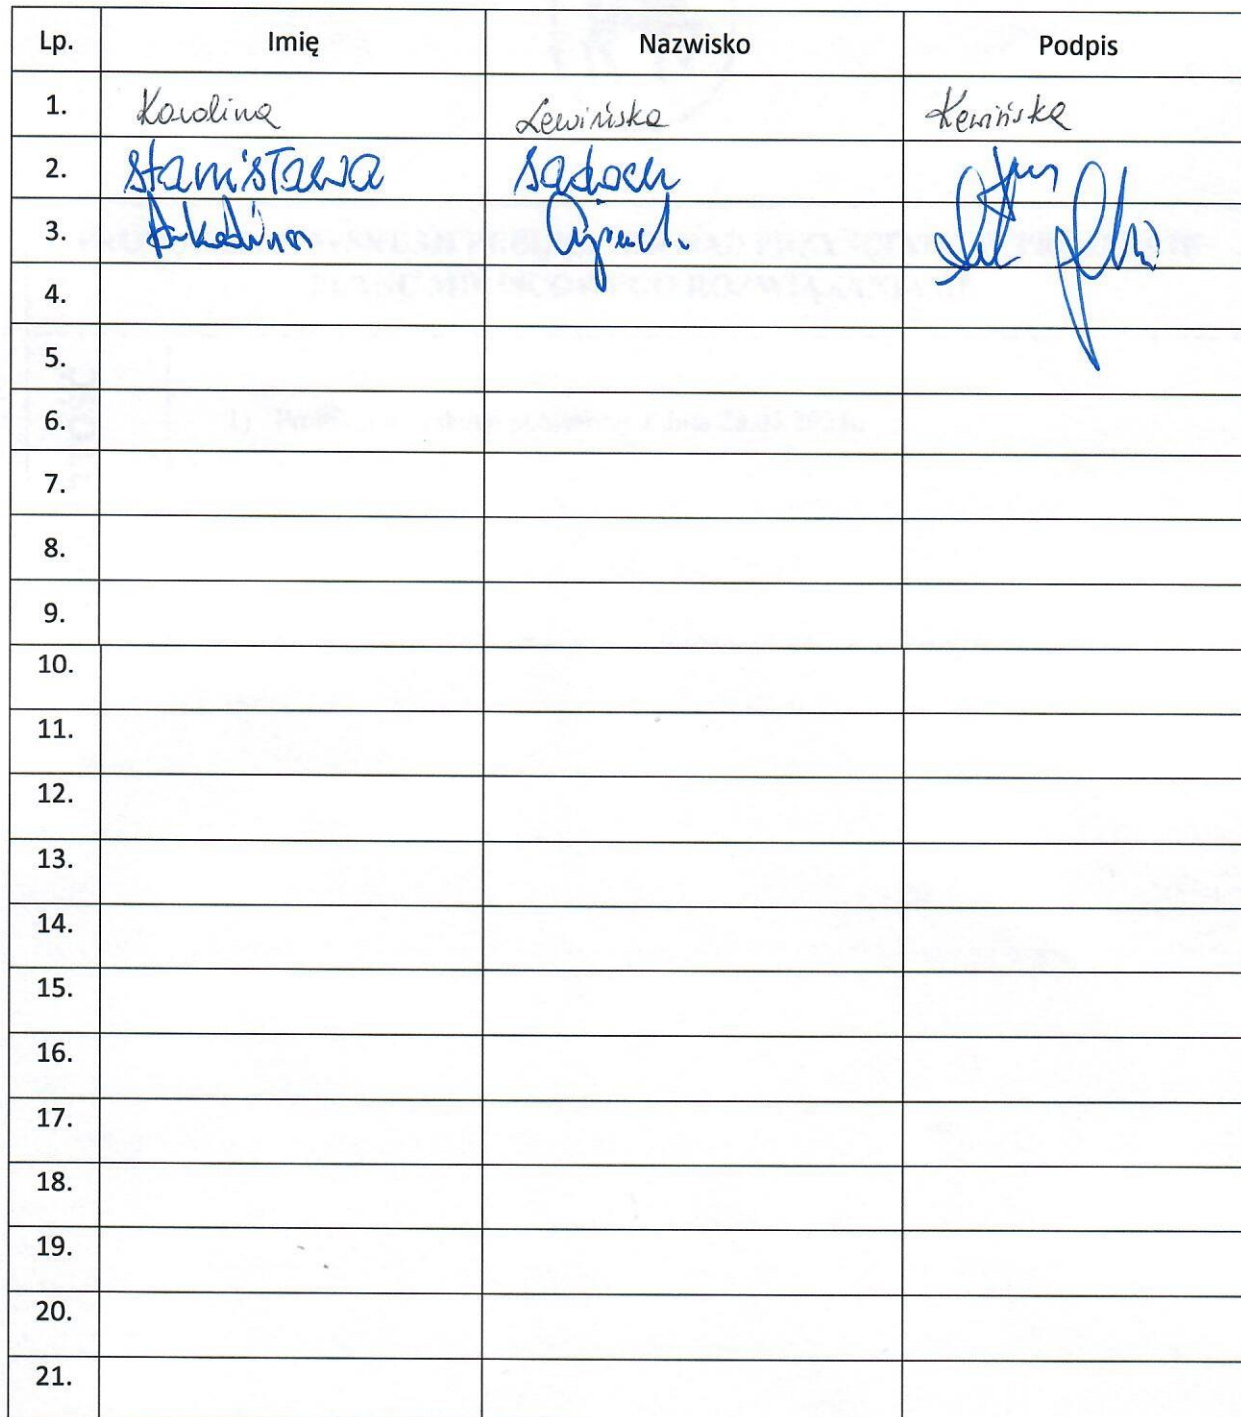 Lp. Imię Nazwisko Podpis
1. Karolina Lewińska Lewińska
2. Stanisława
3.
4.
5.
6.
7.
8.
9.
10.
11.
12.
13.
14.
15.
16.
17.
18.
19.
20.
21.